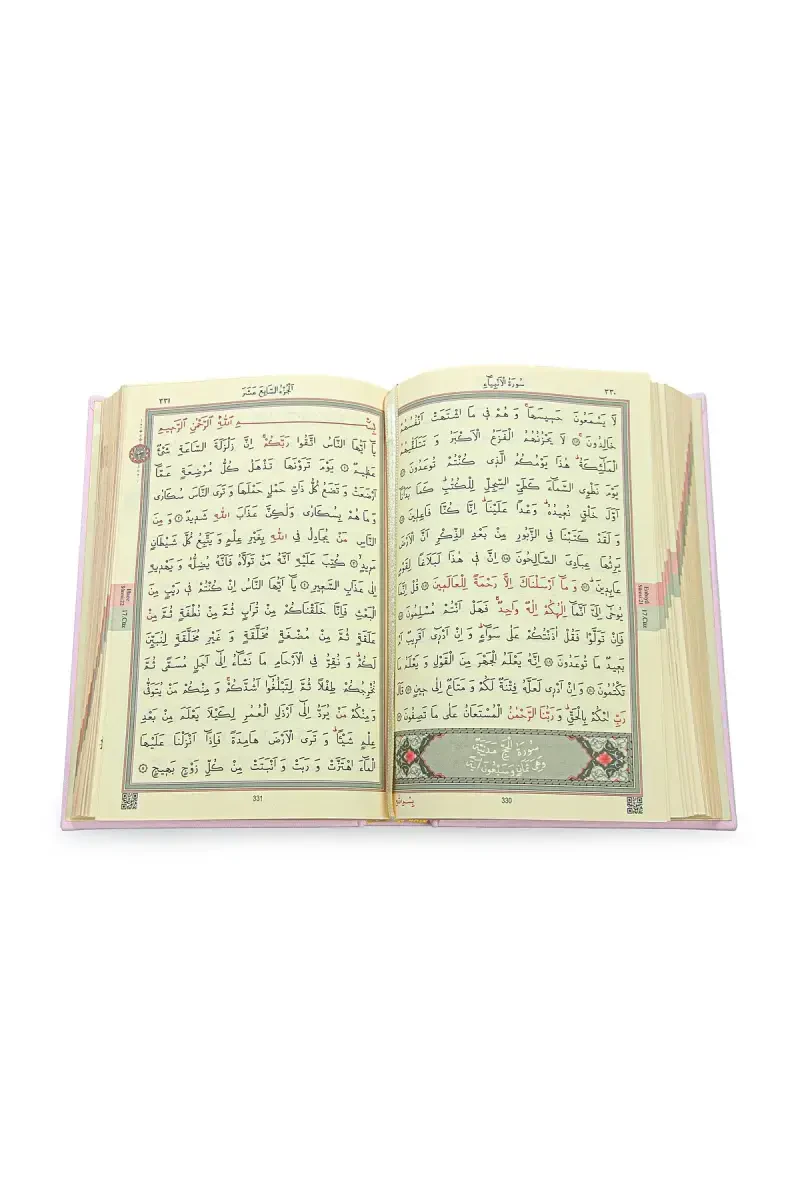 سُورَةُ الْاَنْبِيَاءِ
٣٣٠
لَا يَسْمَعُونَ حَسِيسَهَاۚ وَ هُمْ فِى مَا اشْتَهَتْ اَنْفُسُهُمْ
خَالِدُونَۚ لَا يَحْزُنُهُمُ الْفَزَعُ الْاَكْبَرُ وَ تَتَلَقّٰيهُمُ
الْمَلٰٓئِكَةُۜ هٰذَا يَوْمُكُمُ الَّذِى كُنْتُمْ تُوعَدُونَ
يَوْمَ نَطْوِى السَّمَٓاءَ كَطَىِّ السِّجِلِّ لِلْكُتُبِۜ كَمَا بَدَاْنَٓا
اَوَّلَ خَلْقٍ نُعِيدُهُۜ وَعْدًا عَلَيْنَاۜ اِنَّا كُنَّا فَاعِلِينَ
وَ لَقَدْ كَتَبْنَا فِى الزَّبُورِ مِنْ بَعْدِ الذِّكْرِ اَنَّ الْاَرْضَ
يَرِثُهَا عِبَادِىَ الصَّالِحُونَ اِنَّ فِى هٰذَا لَبَلَاغًا لِقَوْمٍ
عَابِدِينَۜ وَ مَٓا اَرْسَلْنَاكَ اِلَّا رَحْمَةً لِلْعَالَمِينَ قُلْ اِنَّمَا
يُوحٰٓى اِلَىَّ اَنَّمَٓا اِلٰهُكُمْ اِلٰهٌ وَاحِدٌۚ فَهَلْ اَنْتُمْ مُسْلِمُونَ
فَاِنْ تَوَلَّوْا فَقُلْ اٰذَنْتُكُمْ عَلٰى سَوَٓاءٍۜ وَ اِنْ اَدْرِٓى اَقَرِيبٌ اَمْ
بَعِيدٌ مَا تُوعَدُونَ اِنَّهُ يَعْلَمُ الْجَهْرَ مِنَ الْقَوْلِ وَ يَعْلَمُ مَا
تَكْتُمُونَ وَ اِنْ اَدْرِى لَعَلَّهُ فِتْنَةٌ لَكُمْ وَ مَتَاعٌ اِلٰى حِينٍ قَالَ
رَبِّ احْكُمْ بِالْحَقِّۜ وَ رَبُّنَا الرَّحْمٰنُ الْمُسْتَعَانُ عَلٰى مَا تَصِفُونَ
سُورَةُ الْحَجِّ مَدَنِيَّةٌ
وَهِىَ ثَمَانٍ وَسَبْعُونَ اٰيَةً
330
Enbiyâ
Sûresi:21
17.Cüz
٣٣١
اَلْجُزْءُ السَّابِعَ عَشَرَ
بِسْمِ اللّٰهِ الرَّحْمٰنِ الرَّحِيمِ
يَٓا اَيُّهَا النَّاسُ اتَّقُوا رَبَّكُمْۚ اِنَّ زَلْزَلَةَ السَّاعَةِ شَىْءٌ
عَظِيمٌ يَوْمَ تَرَوْنَهَا تَذْهَلُ كُلُّ مُرْضِعَةٍ عَمَّٓا
اَرْضَعَتْ وَ تَضَعُ كُلُّ ذَاتِ حَمْلٍ حَمْلَهَا وَ تَرَى النَّاسَ سُكَارٰى
وَ مَا هُمْ بِسُكَارٰى وَلٰكِنَّ عَذَابَ اللّٰهِ شَدِيدٌ وَ مِنَ
النَّاسِ مَنْ يُجَادِلُ فِى اللّٰهِ بِغَيْرِ عِلْمٍ وَ يَتَّبِعُ كُلَّ شَيْطَانٍ
مَرِيدٍۙ كُتِبَ عَلَيْهِ اَنَّهُ مَنْ تَوَلَّاهُ فَاَنَّهُ يُضِلُّهُ وَ يَهْدِيهِ
اِلٰى عَذَابِ السَّعِيرِ يَٓا اَيُّهَا النَّاسُ اِنْ كُنْتُمْ فِى رَيْبٍ مِنَ
الْبَعْثِ فَاِنَّا خَلَقْنَاكُمْ مِنْ تُرَابٍ ثُمَّ مِنْ نُطْفَةٍ ثُمَّ مِنْ
عَلَقَةٍ ثُمَّ مِنْ مُضْغَةٍ مُخَلَّقَةٍ وَ غَيْرِ مُخَلَّقَةٍ لِنُبَيِّنَ
لَكُمْۜ وَ نُقِرُّ فِى الْاَرْحَامِ مَا نَشَٓاءُ اِلٰٓى اَجَلٍ مُسَمًّى ثُمَّ
نُخْرِجُكُمْ طِفْلًا ثُمَّ لِتَبْلُغُٓوا اَشُدَّكُمْۚ وَ مِنْكُمْ مَنْ يُتَوَفّٰى
وَ مِنْكُمْ مَنْ يُرَدُّ اِلٰٓى اَرْذَلِ الْعُمُرِ لِكَيْلَا يَعْلَمَ مِنْ بَعْدِ
عِلْمٍ شَيْئًاۜ وَ تَرَى الْاَرْضَ هَامِدَةً فَاِذَٓا اَنْزَلْنَا عَلَيْهَا
الْمَٓاءَ اهْتَزَّتْ وَ رَبَتْ وَ اَنْبَتَتْ مِنْ كُلِّ زَوْجٍ بَهِيجٍ
331
Hacc
Sûresi:22
17.Cüz